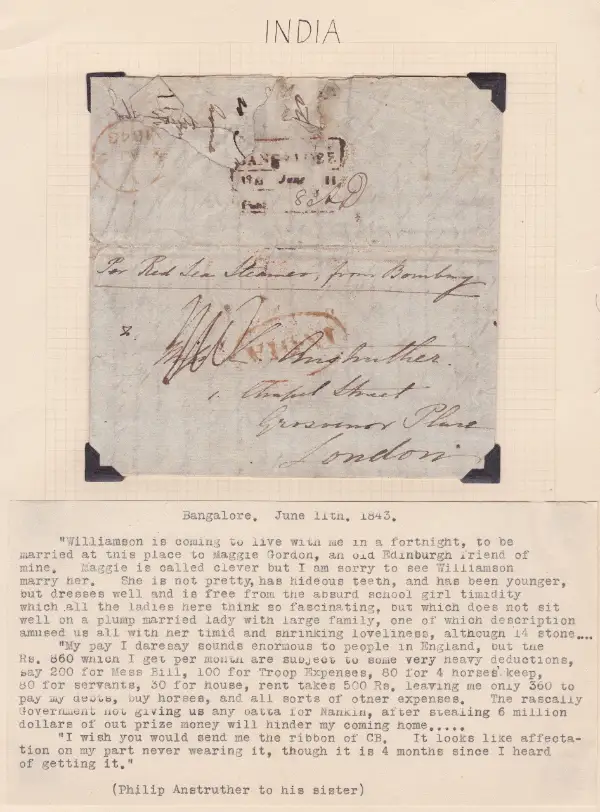 INDIA
1843
BANGALORE
1843 June 11
Per Red Sea Steamer, from Bombay
INDIA
Miss Anstruther.
1. Chapel Street
Grosvenor Place
London
Bangalore. June 11th. 1843.
"Williamson is coming to live with me in a fortnight, to be
married at this place to Maggie Gordon, an old Edinburgh friend of
mine. Maggie is called clever but I am sorry to see Williamson
marry her. She is not pretty, has hideous teeth, and has been younger,
but dresses well and is free from the absurd school girl timidity
which all the ladies here think so fascinating, but which does not sit
well on a plump married lady with large family, one of which description
amused us all with her timid and shrinking loveliness, although 14 stone....
"My pay I daresay sounds enormous to people in England, but the
Rs. 860 which I get per month are subject to some very heavy deductions,
say 200 for Mess Bill, 100 for Troop Expenses, 80 for 4 horses keep,
80 for servants, 30 for house, rent takes 500 Rs. leaving me only 360 to
pay my debts, buy horses, and all sorts of other expenses. The rascally
Government not giving us any batta for Nankin, after stealing 6 million
dollars of out prize money will hinder my coming home.....
"I wish you would send me the ribbon of CB. It looks like affecta-
tion on my part never wearing it, though it is 4 months since I heard
of getting it."
(Philip Anstruther to his sister)